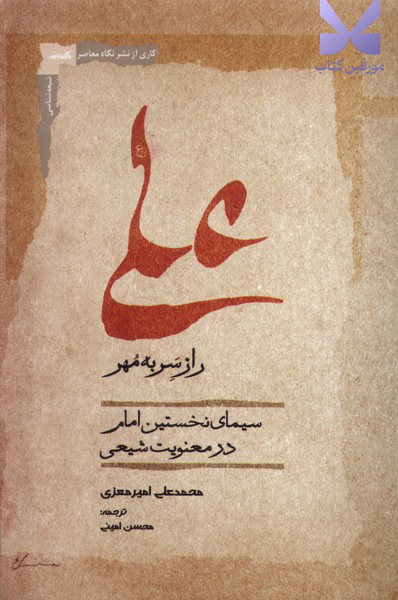 کاری از نشر نگاه معاصر
مورفین کتاب
شیعه‌شناسی
علی
راز سَر به مُهر
سیمای نخستین امام
در معنویت شیعی
محمدعلی امیرمعزی
ترجمه:
محسن امینی